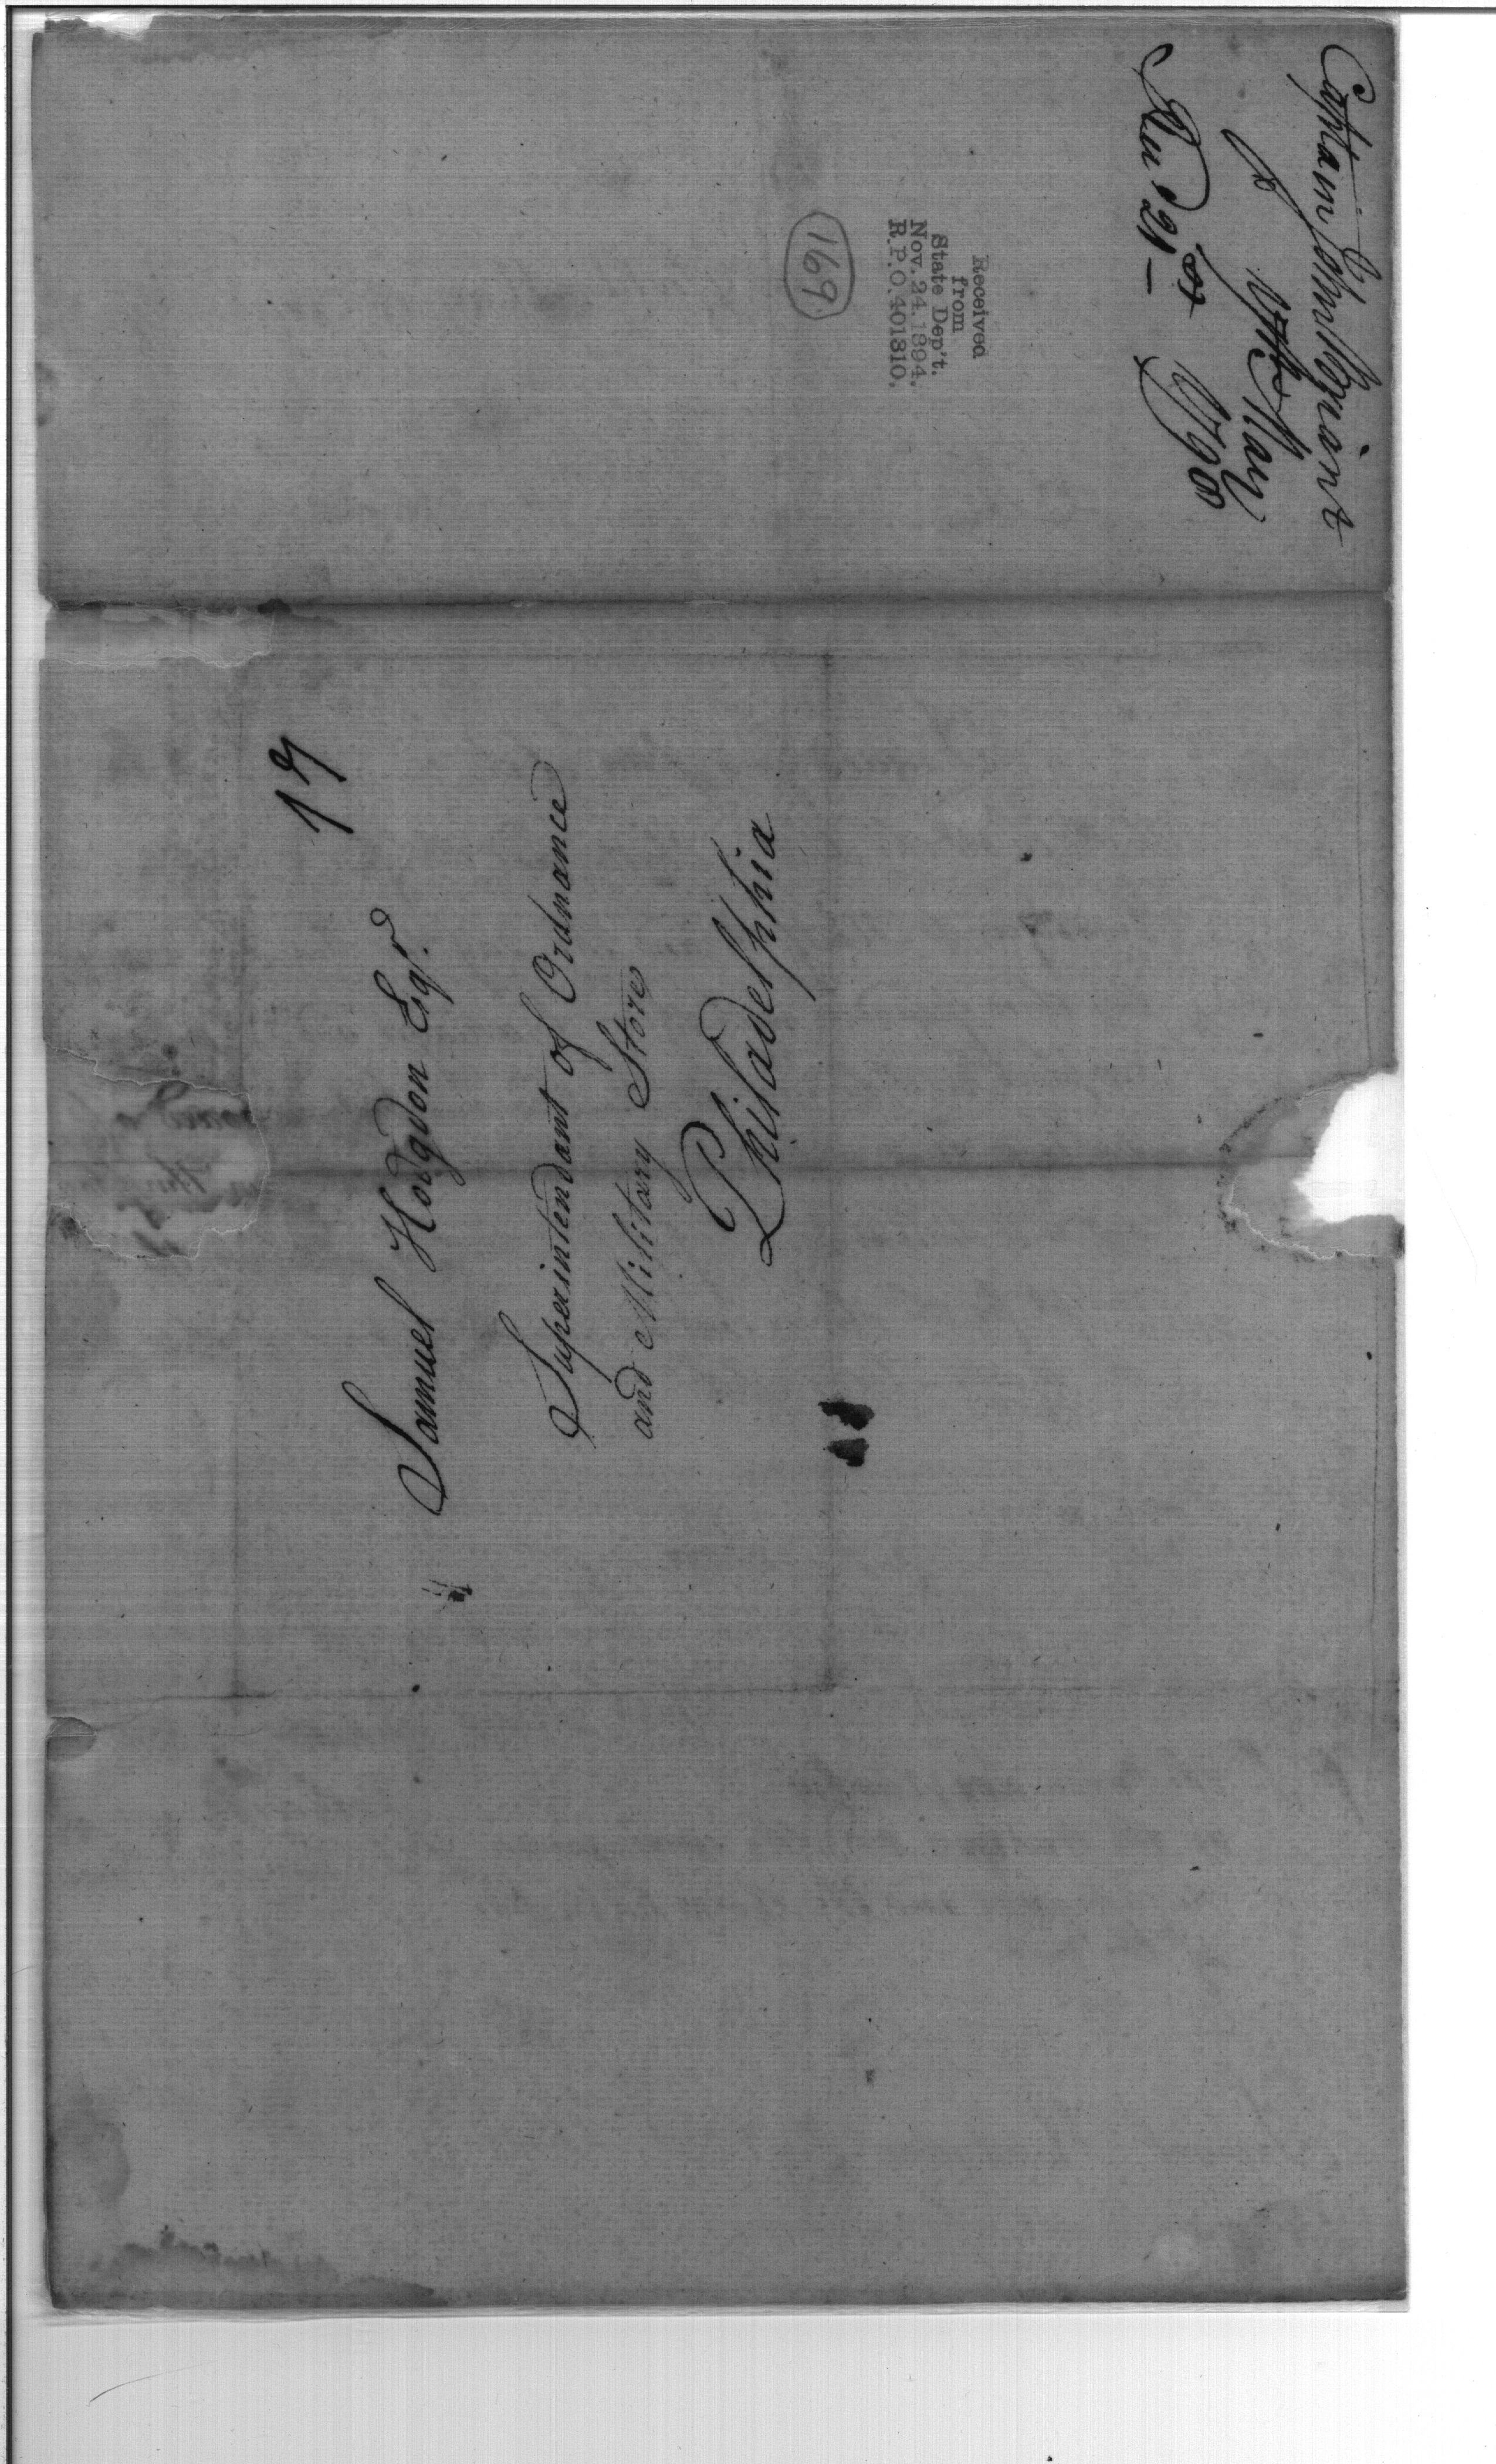 Captain John Bryant
17th May
Rec'd 21st 1798
Received
from
State Dep't.
Nov. 24. 1894.
R.P.O. 401310.
169
17
Samuel Hodgdon Esqr.
Superintendant of Ordnance
and Military Stores
Philadelphia